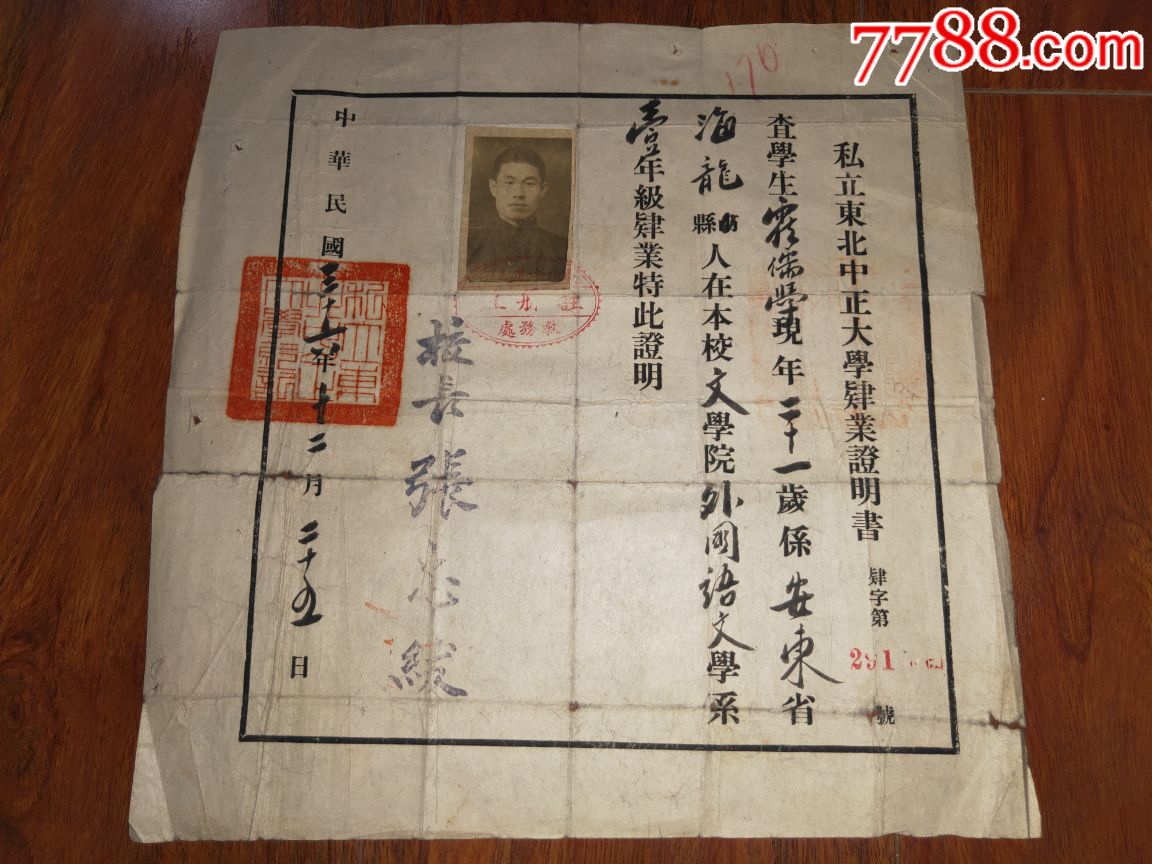 7788.com
170
私立東北中正大學肄業證明書 肄字第 291 號
查學生霍儒學現年二十一歲係安東省
海龍縣人在本校文學院外國語文學系
壹年級肄業特此證明
校長張忠紱
中華民國三十六年十二月二十五日
證
教務處